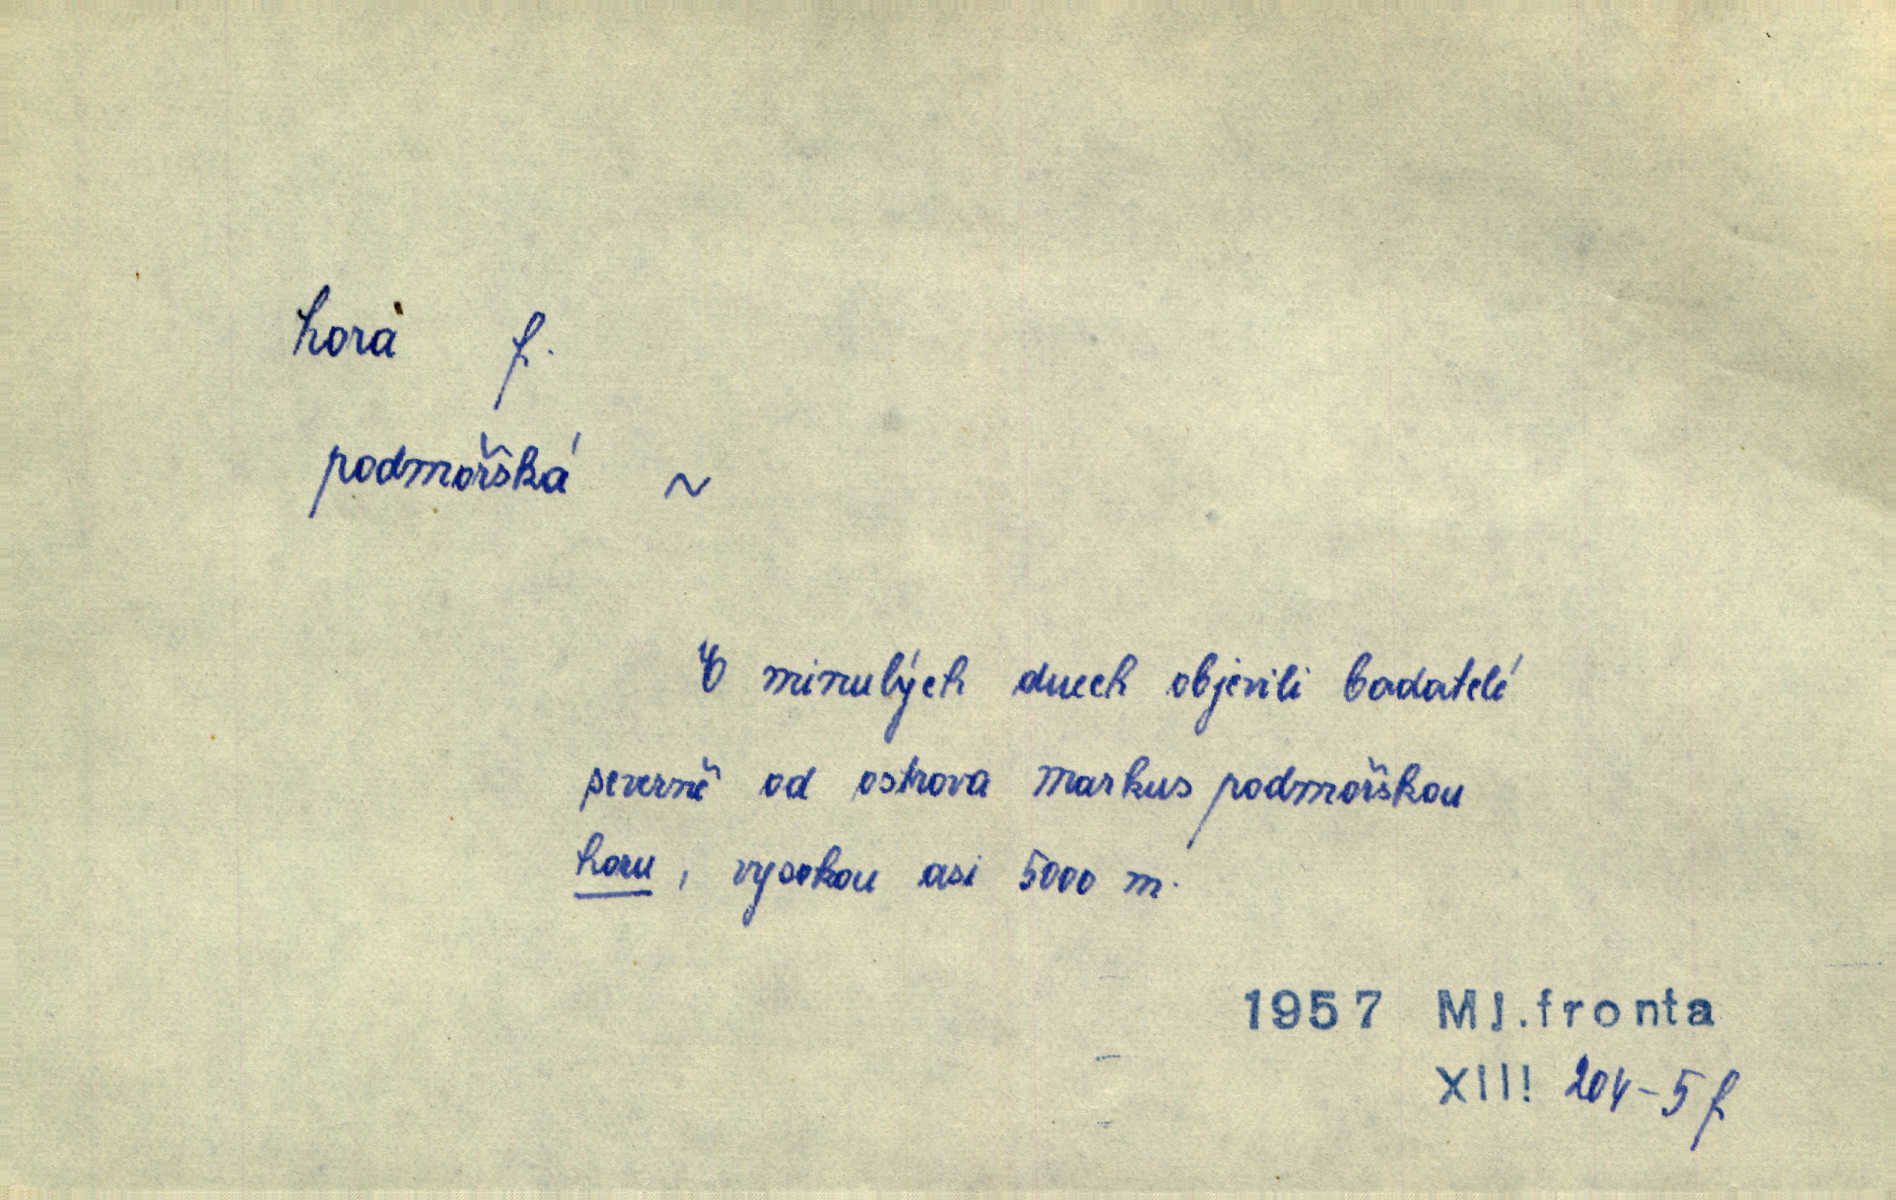 hora f.
podmořská ~
V minulých dnech objevili badatelé
severně od ostrova Markus podmořskou
horu, vysokou asi 5000 m.
1957 Ml.fronta
XIII 204-5 f